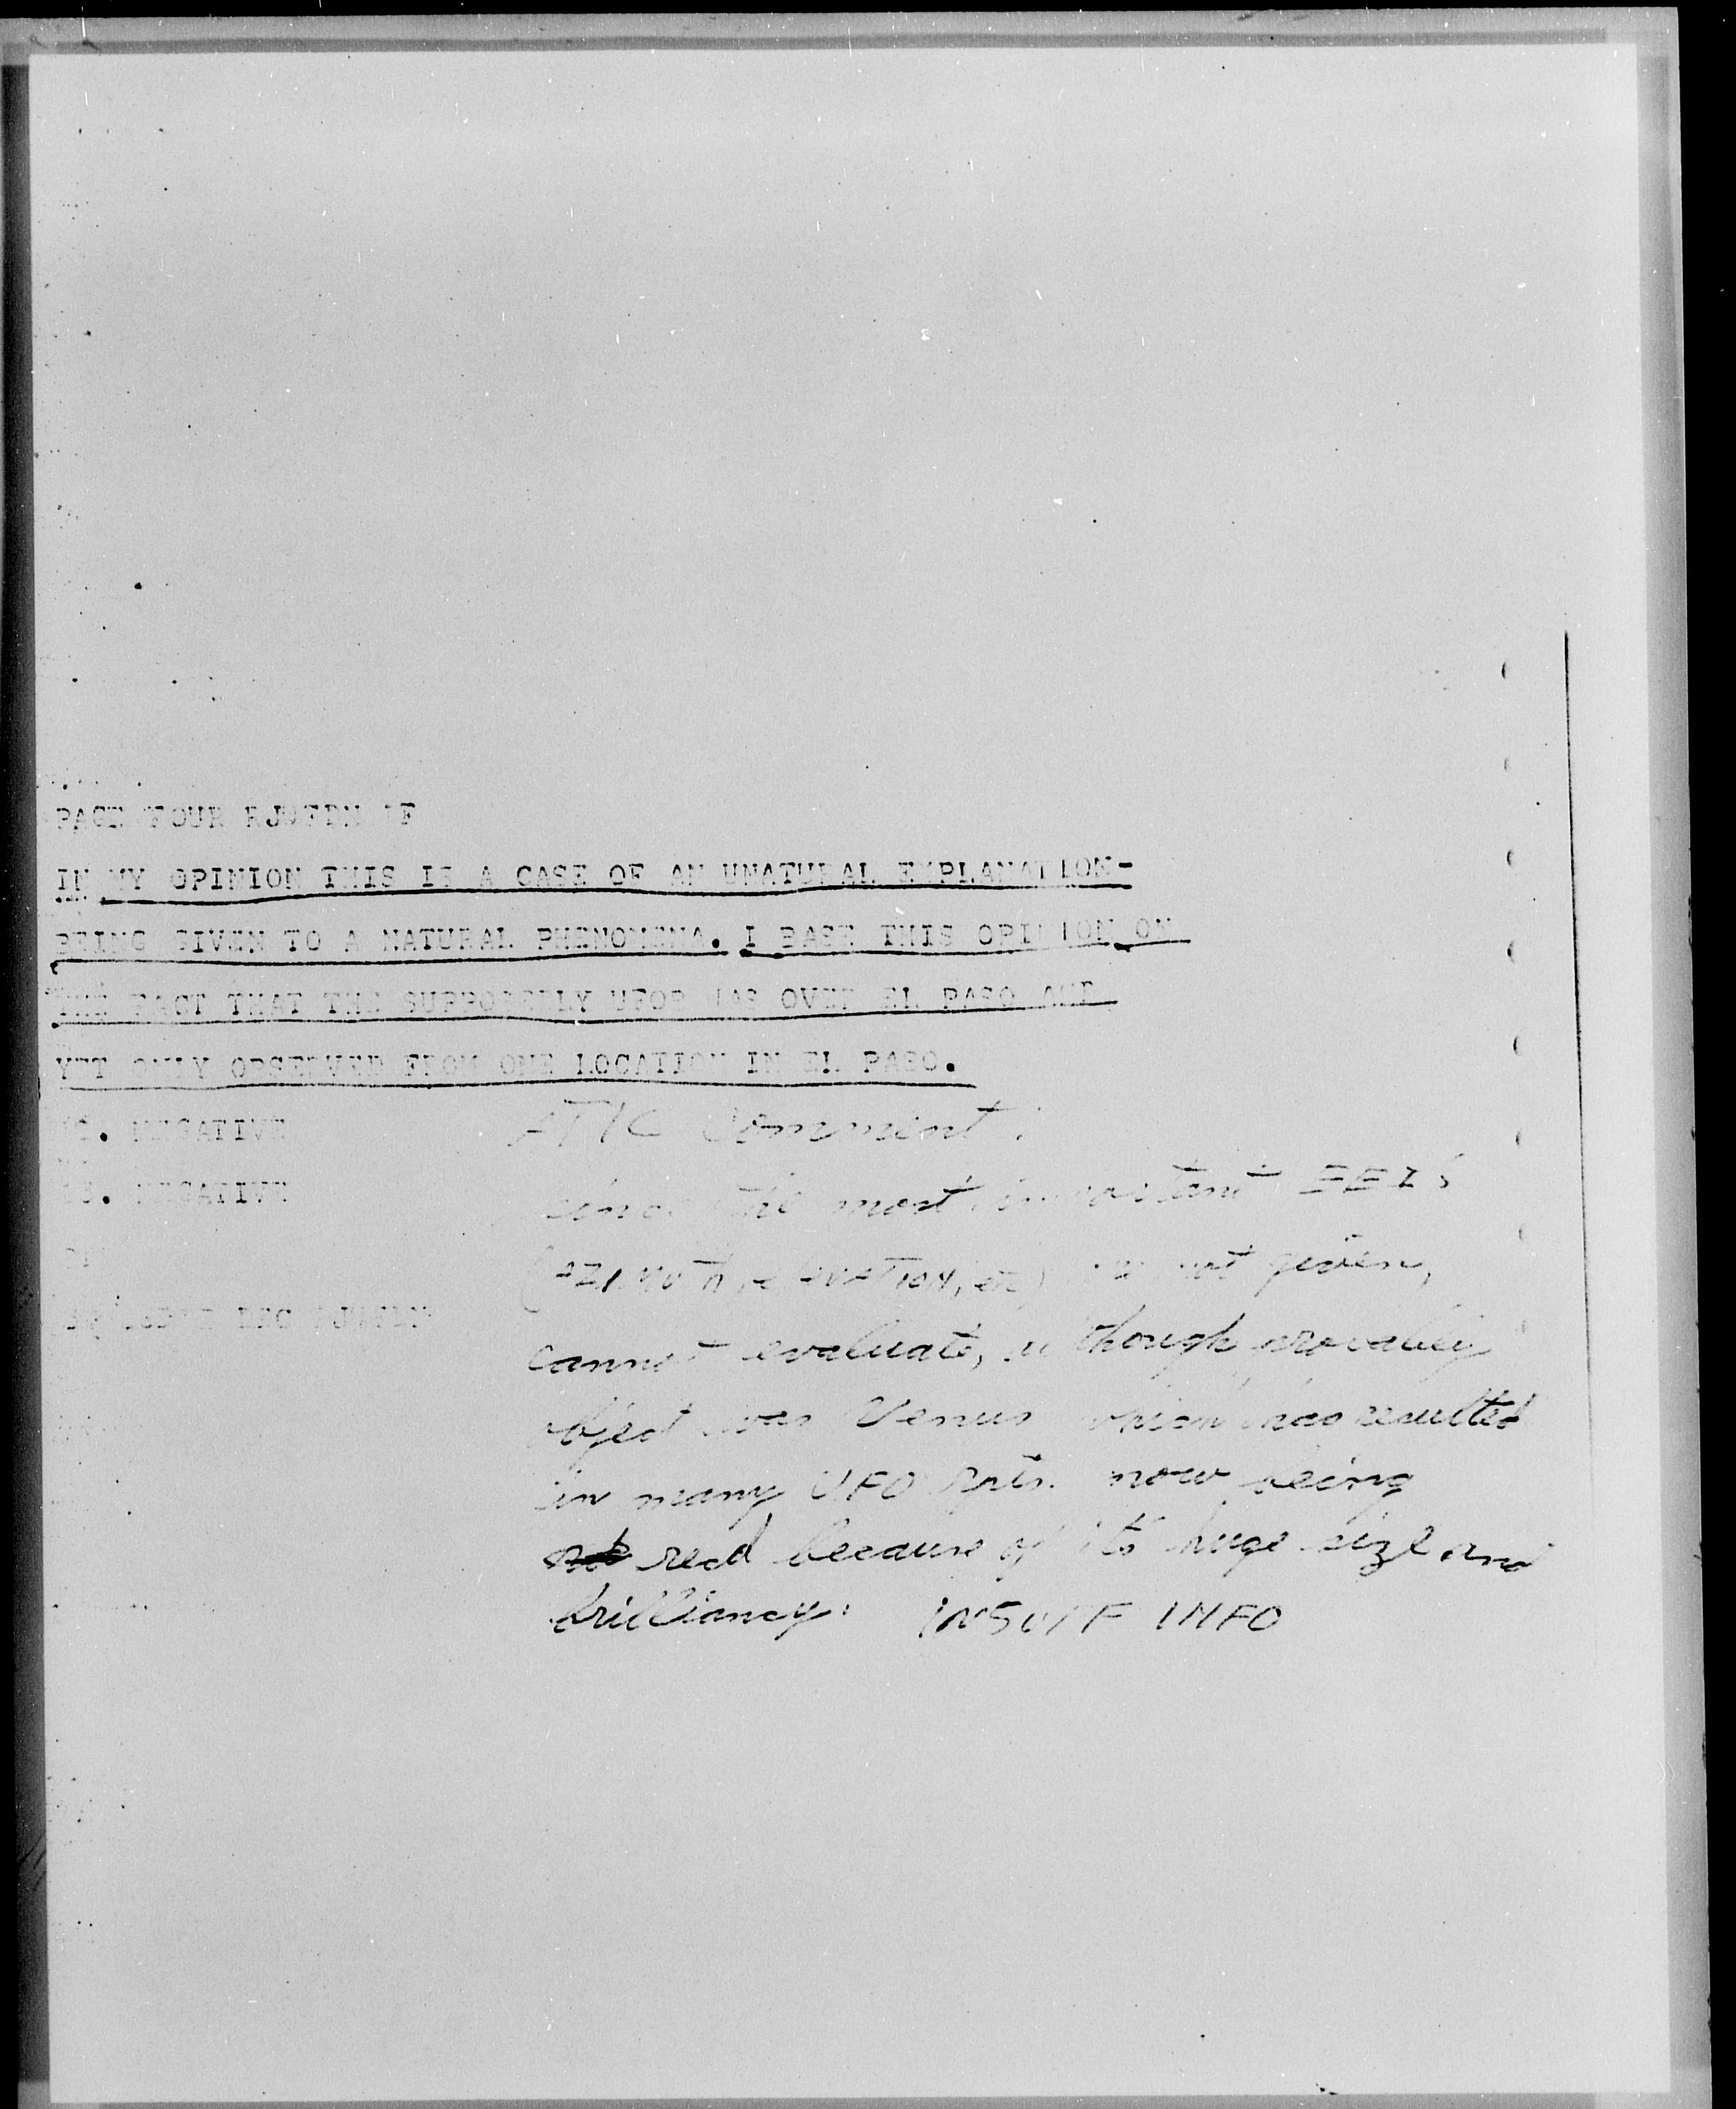 PAGE FOUR
IN MY OPINION THIS IS A CASE OF AN UNATURAL EXPLANATION-
BEING GIVEN TO A NATURAL PHENOMENA. I BASE THIS OPINION ON
THE FACT THAT THE SUPPOSEDLY UFOB WAS OVER EL PASO AND
YET ONLY OBSERVED FROM ONE LOCATION IN EL PASO.
NEGATIVE
NEGATIVE
ATIC Comment:
since the most important EEI's
(AZIMUTH, ELEVATION, etc) not given,
cannot evaluate, although probably
object was Venus which has resulted
in many UFO rpts. now being
recd because of its huge size and
brilliancy: INSUFF INFO